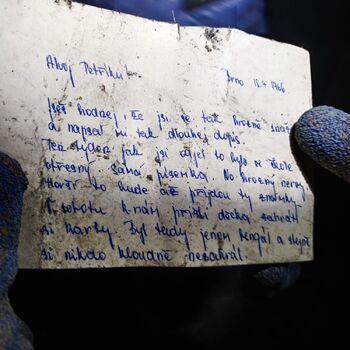 Ahoj Petříku!
Brno 13.4.1966
Jseš hodnej, že jsi se tak hrozně snažil
a napsal mi tak dlouhej dopis.
Ten týden jak jsi odjel to bylo ve škole
otřesný, samá písemka. No hrozný nervy.
Horší to bude až přijdou ty známky.
V sobotu k nám přišli děcka zahrát
si karty. Byl tady jenom Rengál a stejně
si nikdo kloudně nezahrál.